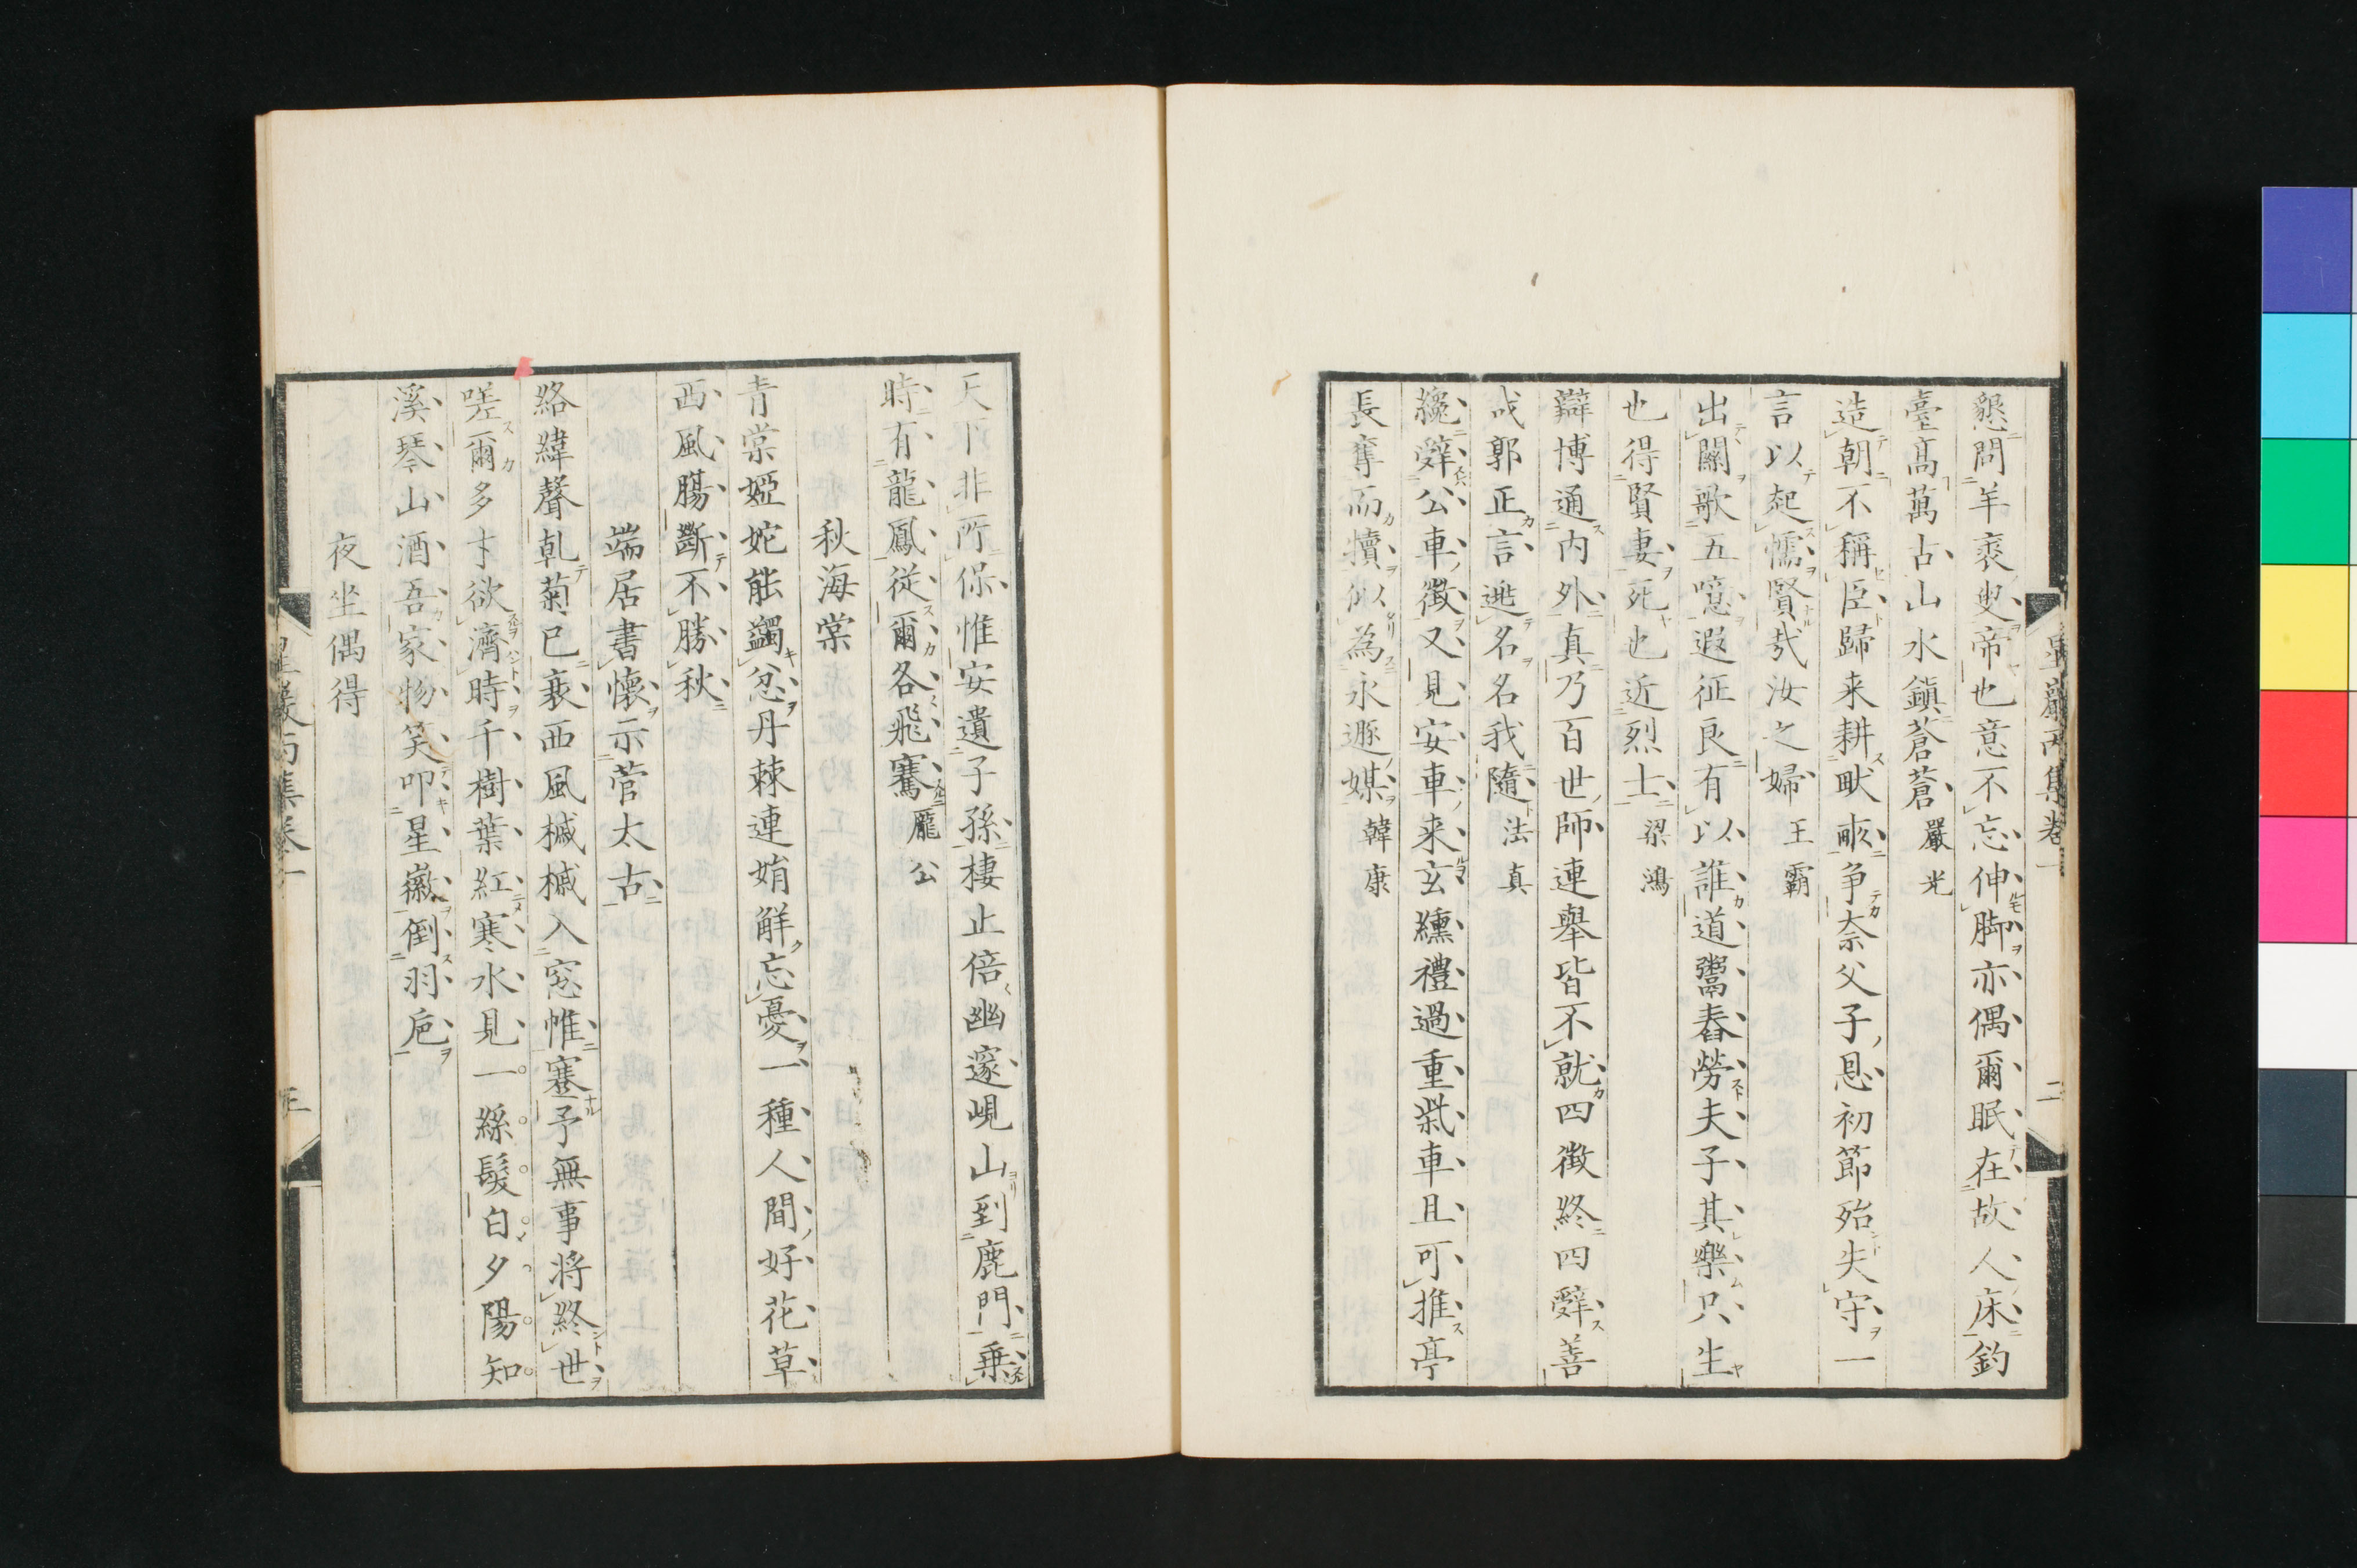 星巖丙集卷一 二
懇問羊裘叟帝也意不忘伸脚亦偶爾眠在故人床釣
臺高萬古山水鎮蒼蒼 嚴光
造朝不稱臣歸来耕畎畝爭奈父子恩初節殆失守一
言以起懦賢哉汝之婦 王霸
出關歌五噫遐征良有以誰道鬻舂勞夫子其樂只生
也得賢妻死也近烈士 梁鴻
辯博通内外真乃百世師連舉皆不就四徵終四辭善
哉郭正言逃名名我隨 法真
纔辭公車徵又見安車来玄纁禮過重柴車且可推亭
長奪而犢似為永遯媒 韓康
天下非所保惟安遺子孫棲止倍幽邃峴山到鹿門乗
時有龍鳳従爾各飛騫 龐公
秋海棠
青棠婭姹能蠲忿丹棘連娟解忘憂一種人間好花草
西風腸斷不勝秋
端居書懷示菅太古
絡緯聲乹菊已衰西風槭槭入窓帷塞予無事将終世
嗟爾多才欲濟時千樹葉紅寒水見一絲髮白夕陽知
溪琴山酒吾家物笑叩星徽倒羽卮
夜坐偶得
星巖丙集卷一 三